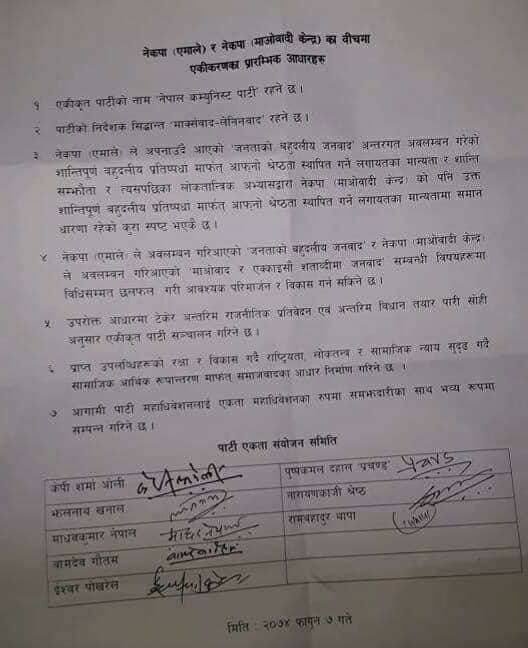 नेकपा (एमाले) र नेकपा (माओवादी केन्द्र) का वीचमा
एकीकरणका प्रारम्भिक आधारहरू
१ एकीकृत पार्टीको नाम 'नेपाल कम्युनिस्ट पार्टी' रहने छ ।
२ पार्टीको निर्देशक सिद्धान्त 'मार्क्सवाद-लेनिनवाद' रहने छ ।
३ नेकपा (एमाले) ले अपनाउदै आएको 'जनताको बहुदलीय जनवाद' अन्तरगत अवलम्बन गरेको
शान्तिपूर्ण बहुदलीय प्रतिष्पर्धा मार्फत आफ्नो श्रेष्ठता स्थापित गर्ने लगायतका मान्यता र शान्ति
सम्झौता र त्यसपछिका लोकतान्त्रिक अभ्यासद्वारा नेकपा (माओवादी केन्द्र) को पनि उक्त
शान्तिपूर्ण बहुदलीय प्रतिष्पर्धा मार्फत् आफ्नो श्रेष्ठता स्थापित गर्ने लगायतका मान्यतामा समान
धारणा रहेको कुरा स्पष्ट भएकै छ ।
४ नेकपा (एमाले) ले अवलम्बन गरिआएको 'जनताको बहुदलीय जनवाद' र नेकपा (माओवादी केन्द्र)
ले अवलम्बन गरिआएको 'माओवाद र एक्काइसौं शताब्दीमा जनवाद' सम्बन्धी विषयहरूमा
विधिसम्मत छलफल गरी आवश्यक परिमार्जन र विकास गर्न सकिने छ ।
५ उपरोक्त आधारमा टेकेर अन्तरिम राजनीतिक प्रतिवेदन एवं अन्तरिम विधान तयार पारी सोही
अनुसार एकीकृत पार्टी सञ्चालन गरिने छ ।
६ प्राप्त उपलब्धिहरूको रक्षा र विकास गर्दै राष्ट्रियता, लोकतन्त्र र सामाजिक न्याय सुदृढ गर्दै
सामाजिक आर्थिक रूपान्तरण मार्फत् समाजवादका आधार निर्माण गरिने छ ।
७ आगामी पार्टी महाधिवेशनलाई एकता महाधिवेशनका रुपमा समझदारीका साथ भव्य रूपमा
सम्पन्न गरिने छ ।
पार्टी एकता संयोजन समिति
केपी शर्मा ओली
पुष्पकमल दाहाल 'प्रचण्ड'
झलनाथ खनाल
नारायणकाजी श्रेष्ठ
माधवकुमार नेपाल
रामबहादुर थापा
वामदेव गौतम
ईश्वर पोखरेल
मिति : २०७४ फागुन ७ गते